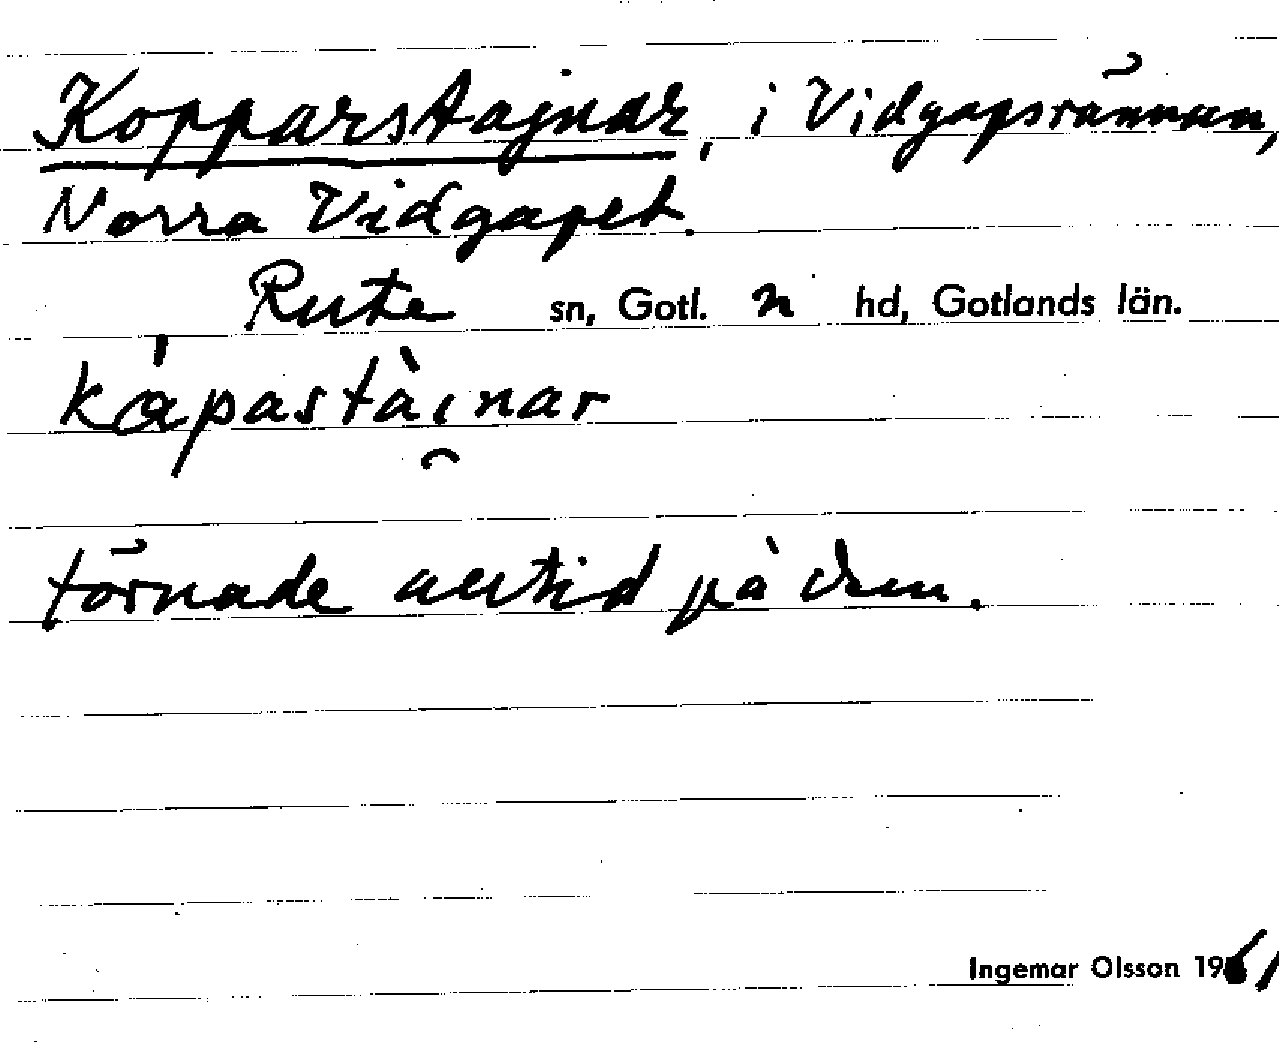 Kopparstajnar, i Vidgapsrännan,
Norra Vidgapet.
Rute sn, Gotl. n hd, Gotlands län.
kápastài̯nar
törnade alltid på dem.
Ingemar Olsson 1961